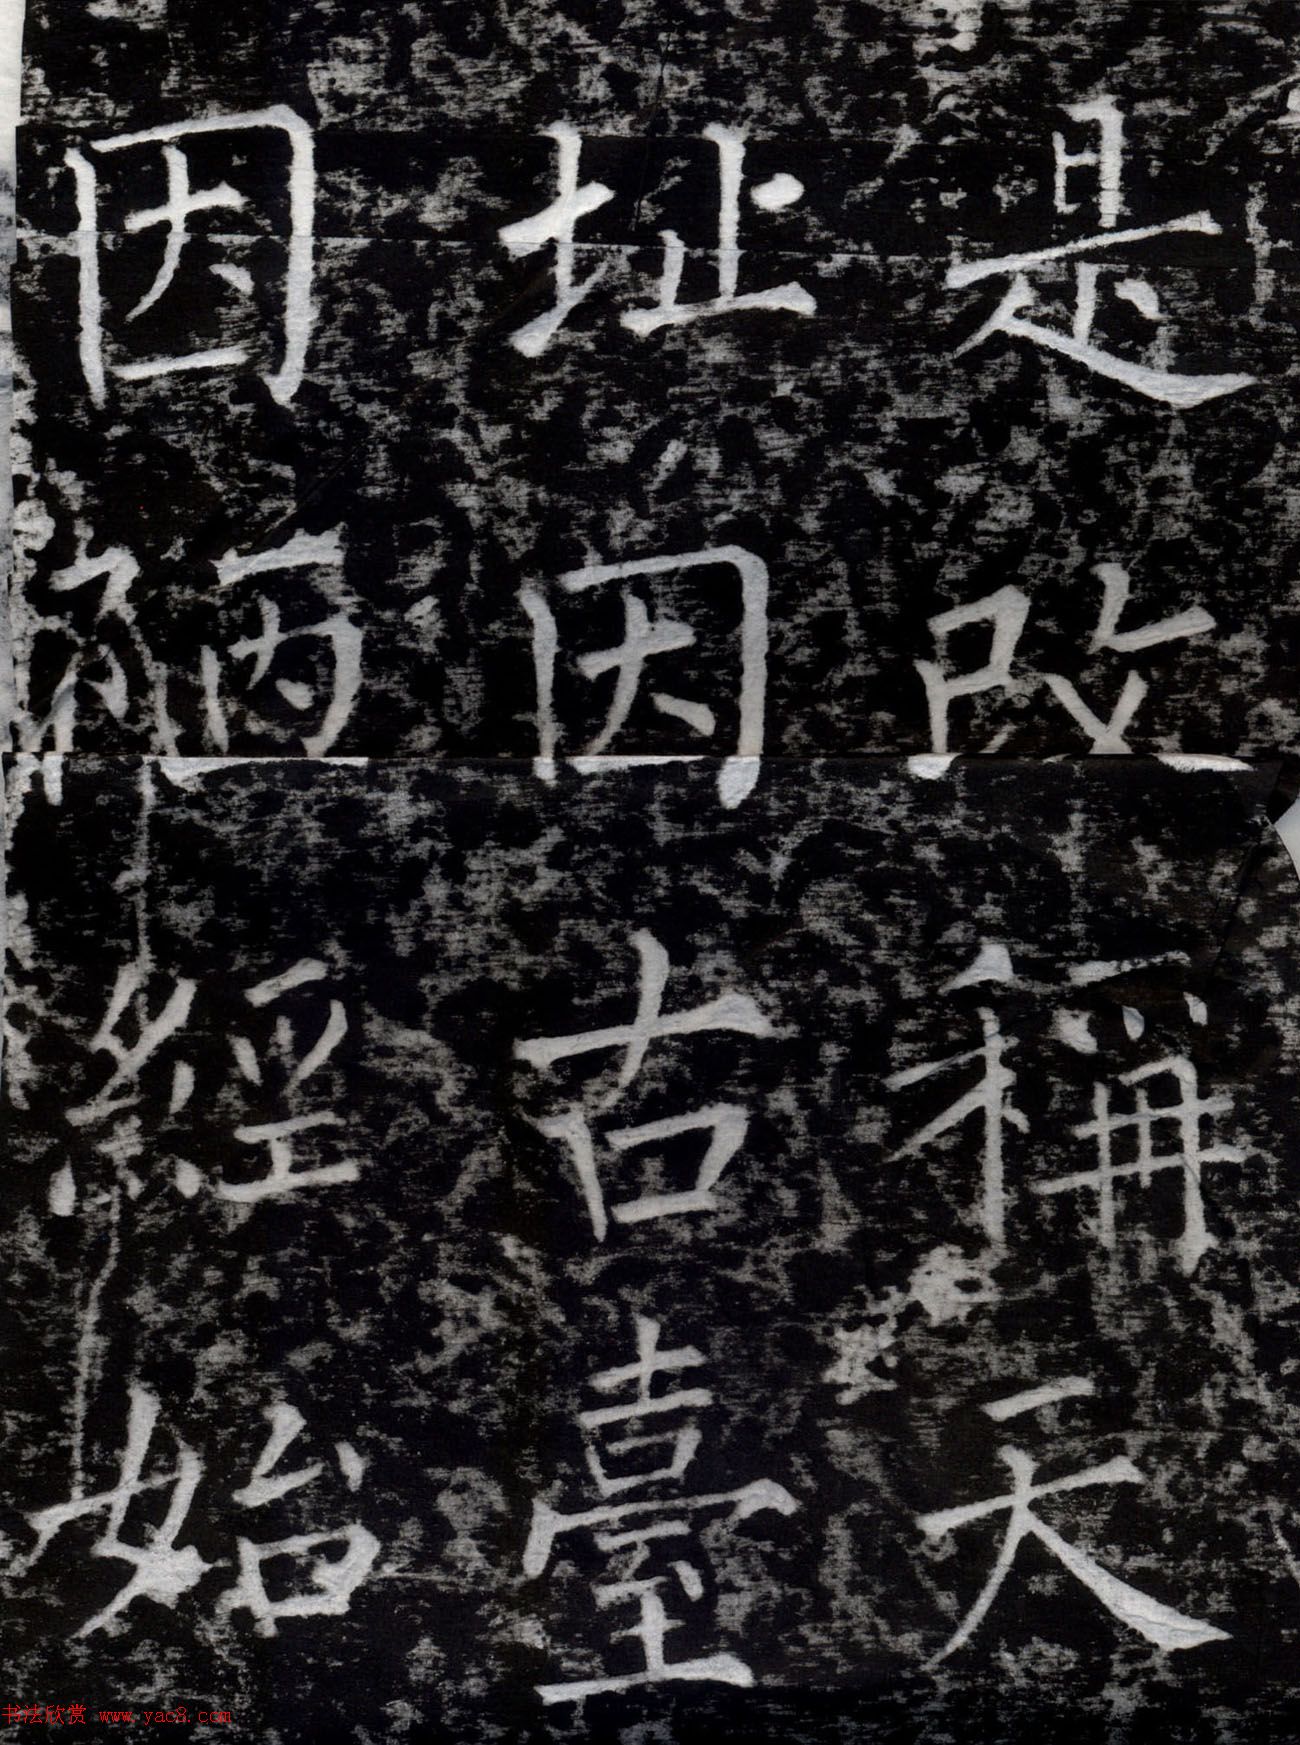 是改稱天
址因古臺
因經始
书法欣赏 www.yac8.com